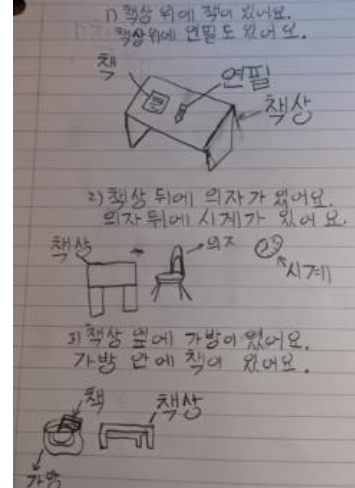 1) 책상 위에 책이 있어요.
책상위에 연필도 있어요.
책
연필
책상
2) 책상 뒤에 의자가 있어요.
의자뒤에 시계가 있어요.
책상
의자
시계
3) 책상 옆에 가방이 있어요.
가방 안에 책이 있어요.
책
책상
가방